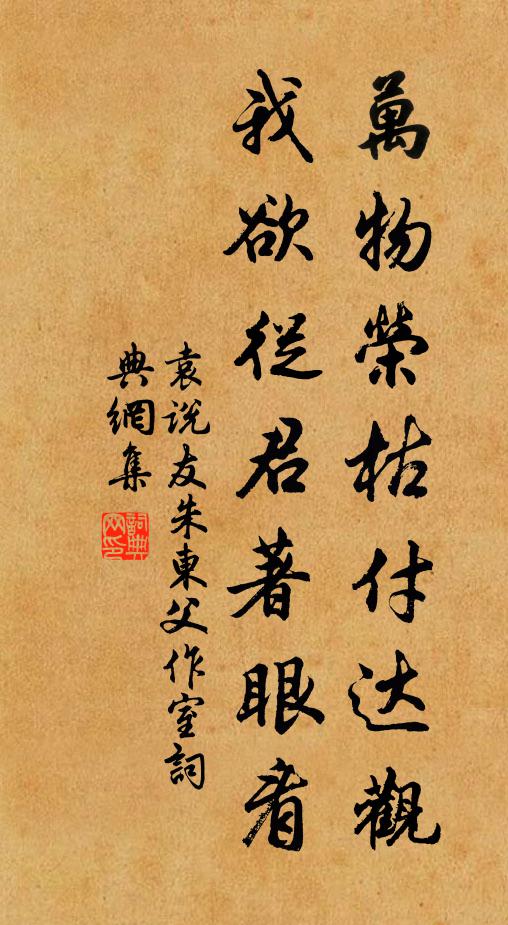 萬物榮枯付达觀
我欲從君著眼看
袁説友朱東父作室詞
典網集
詞典
网印